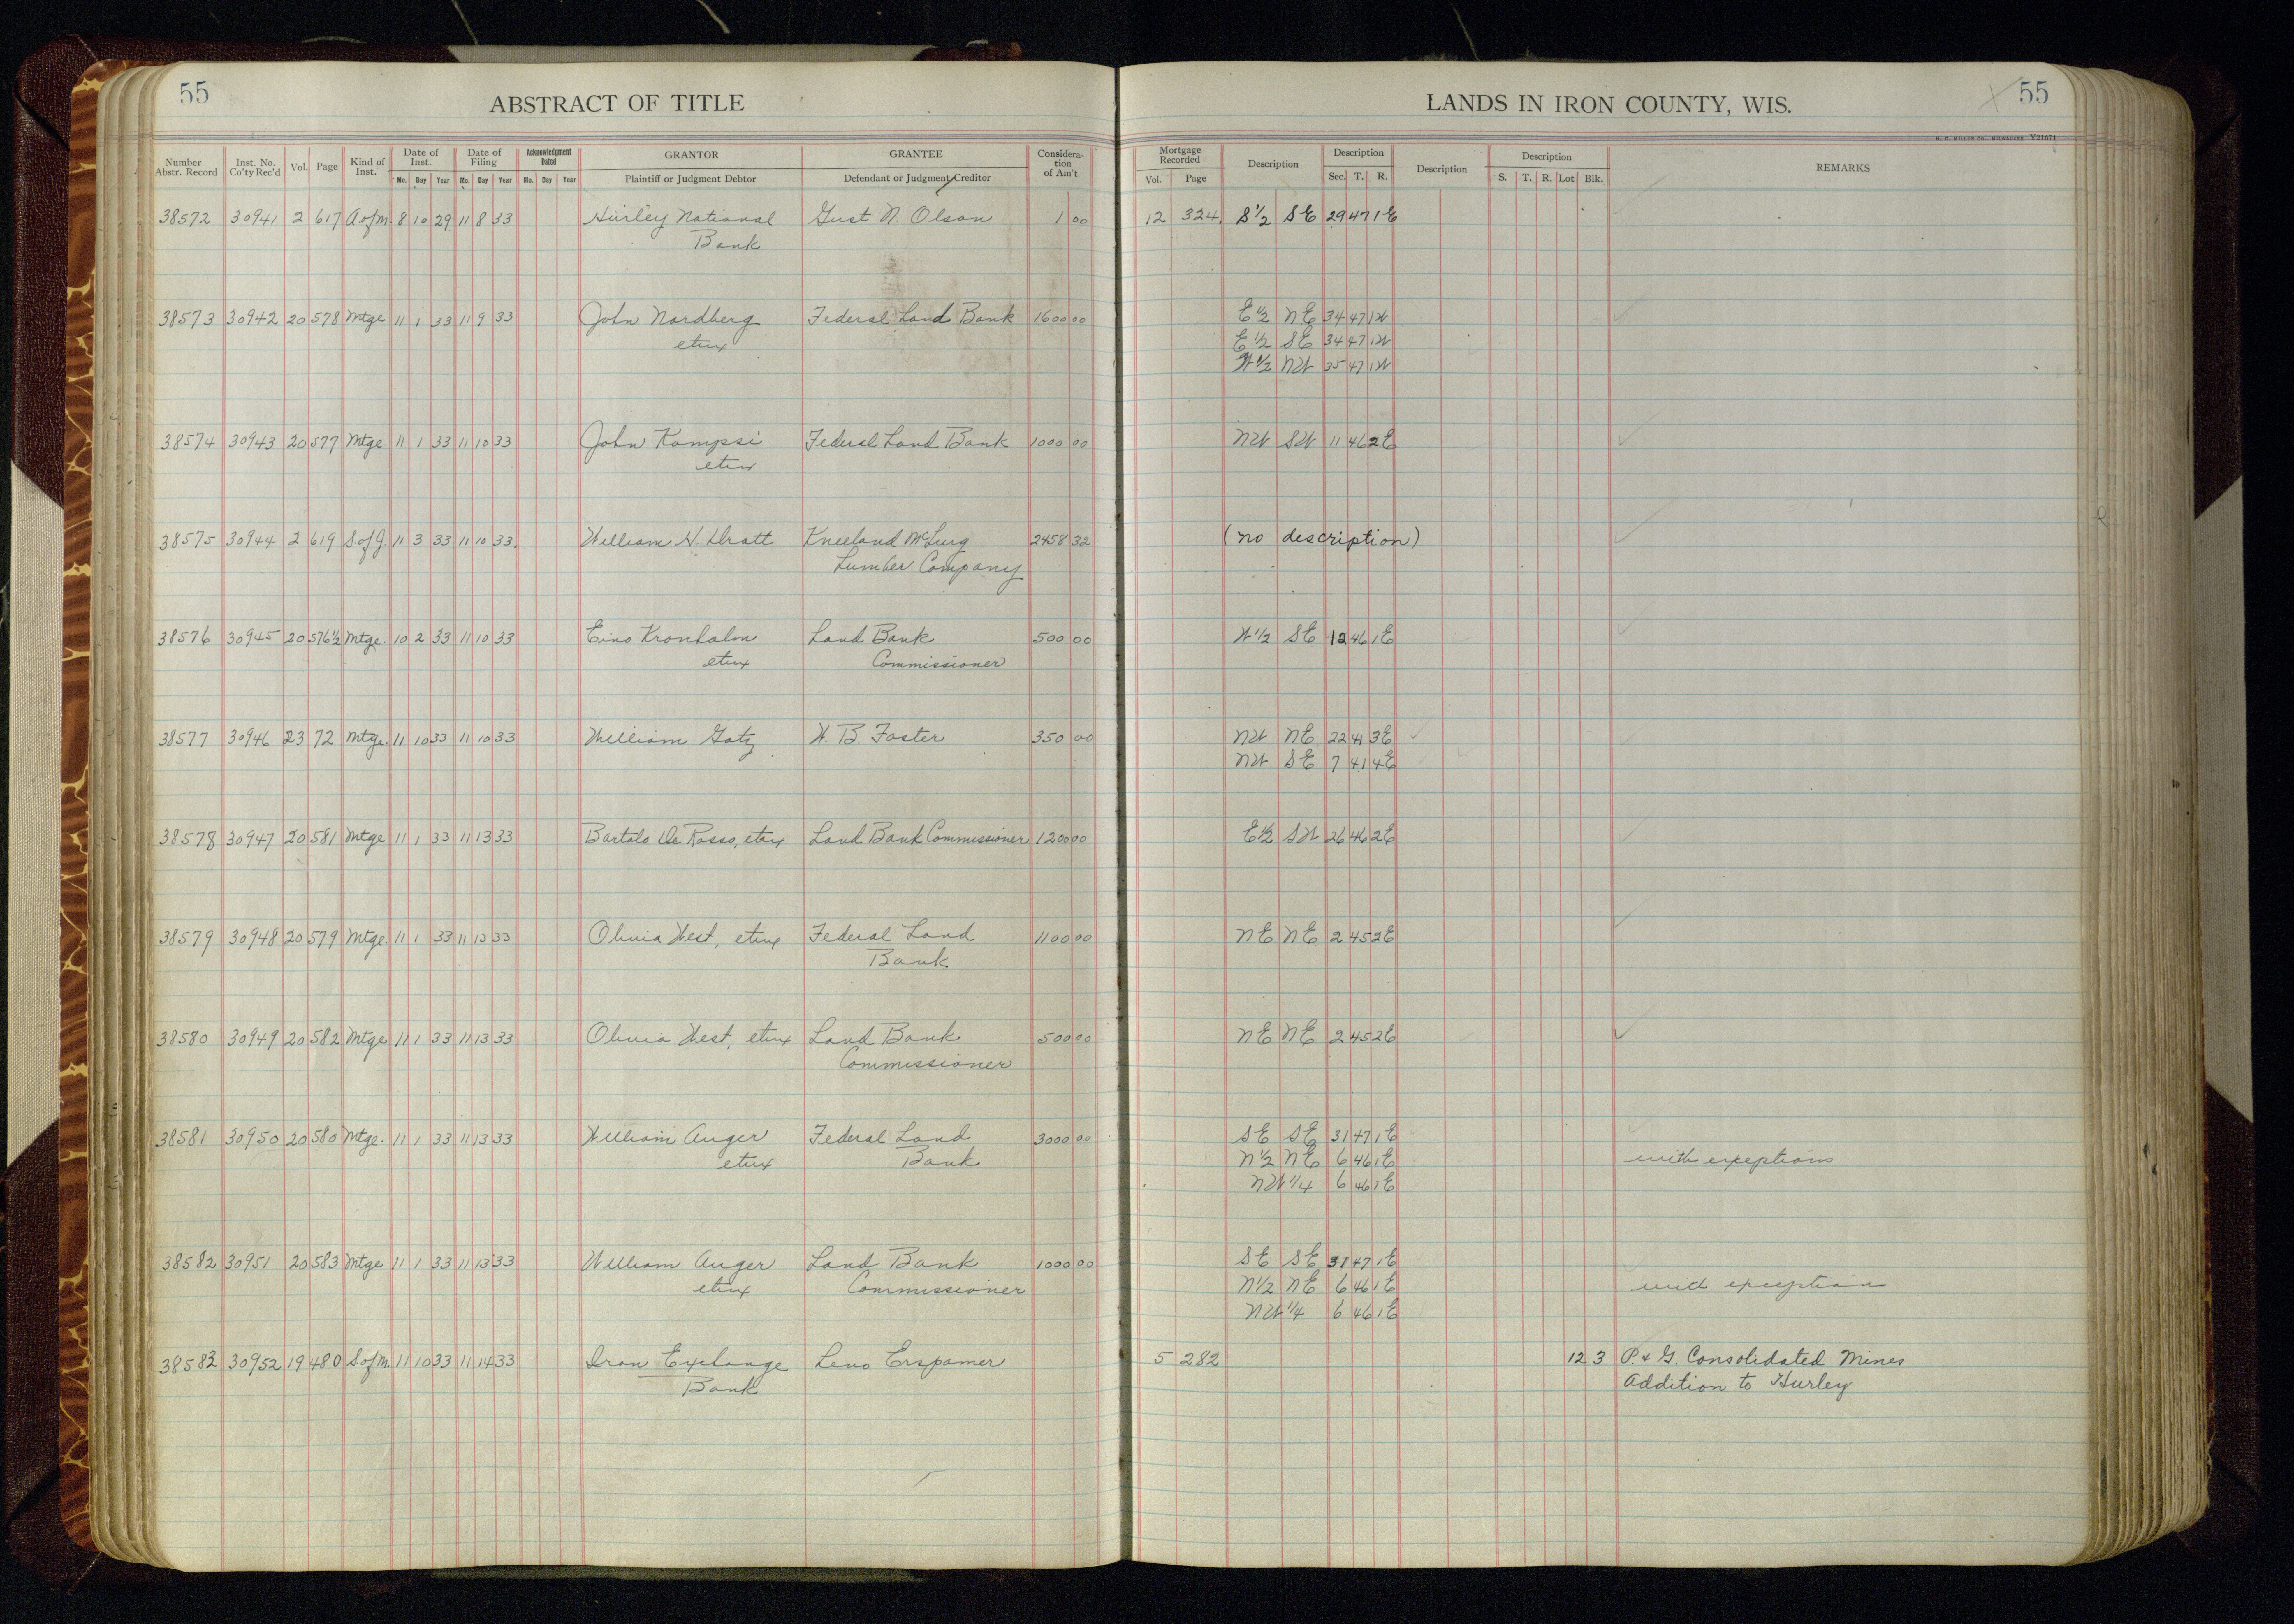 55
ABSTRACT OF TITLE
Number Abstr. Record Inst. No. Co'ty Rec'd Vol. Page Kind of Inst. Date of Inst. Mo. Day Year Date of Filing Mo. Day Year Acknowledgment Dated Mo. Day Year GRANTOR Plaintiff or Judgment Debtor GRANTEE Defendant or Judgment Creditor Considera-tion of Am't
LANDS IN IRON COUNTY, WIS.
55
H. C. MILLER CO., MILWAUKEE V21671
Mortgage Recorded Vol. Page Description Description Sec. T. R. Description Description S. T. R. Lot Blk. REMARKS
38572 30941 2 617 A of M. 8 10 29 11 8 33 Hurley National Gust N. Olson 1 00 12 324 S 1/2 SE 29 47 1E
Bank
38573 30942 20 578 Mtge 11 1 33 11 9 33 John Nordberg Federal Land Bank 1600 00 E 1/2 NE 34 47 1W
etux E 1/2 SE 34 47 1W
W 1/2 NW 35 47 1W
38574 30943 20 577 Mtge. 11 1 33 11 10 33 John Kompsi Federal Land Bank 1000 00 NW SW 11 46 2E
etux
38575 30944 2 619 S of J. 11 3 33 11 10 33. William H. Kneeland McLurg 2458 32 (no description)
Lumber Company
38576 30945 20 576 1/2 Mtge. 10 2 33 11 10 33 Eino Kronholm Land Bank 500 00 W 1/2 SE 12 46 1E
etux Commissioner
38577 30946 23 72 Mtge. 11 10 33 11 10 33 William Gotz W. B. Foster 350 00 NW NE 22 41 3E
NW SE 7 41 4E
38578 30947 20 581 Mtge 11 1 33 11 13 33 Bartolo De Rosso, etux Land Bank Commissioner 1200 00 E 1/2 SW 26 46 2E
38579 30948 20 579 Mtge. 11 1 33 11 13 33 Olivia West, etux Federal Land 1100 00 NE NE 2 45 2E
Bank
38580 30949 20 582 Mtge 11 1 33 11 13 33 Olivia West, etux Land Bank 500 00 NE NE 2 45 2E
Commissioner
38581 30950 20 580 Mtge. 11 1 33 11 13 33 William Auger Federal Land 3000 00 SE SE 31 47 1E
etux Bank N 1/2 NE 6 46 1E with exceptions
NW 1/4 6 46 1E
38582 30951 20 583 Mtge 11 1 33 11 13 33 William Auger Land Bank 1000 00 SE SE 31 47 1E
etux Commissioner N 1/2 NE 6 46 1E exception
NW 1/4 6 46 1E
38583 30952 19 480 S of M. 11 10 33 11 14 33 Iron Exchange Leno Erspamer 5 282 12 3 P. & G. Consolidated Mines
Bank Addition to Hurley